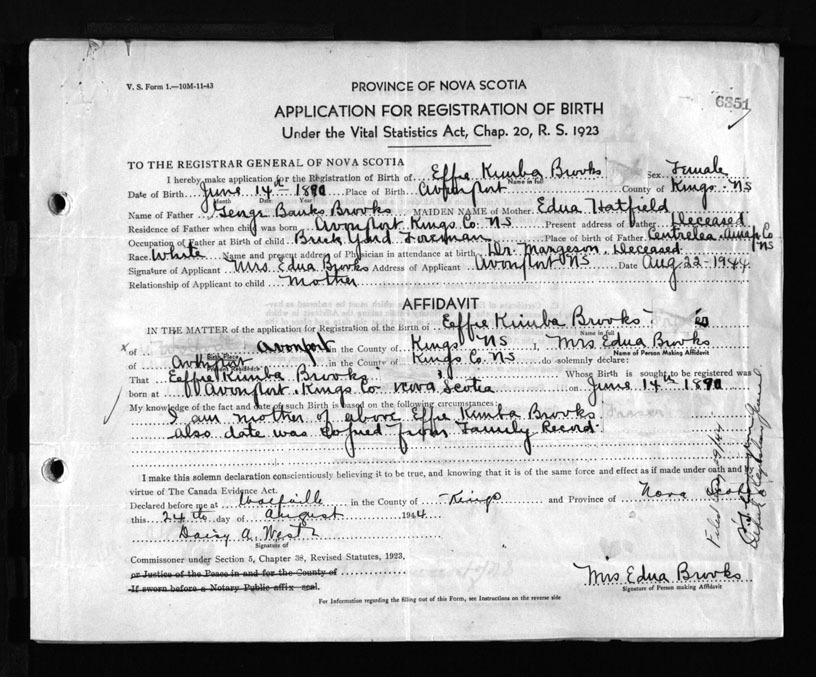 V. S. Form 1.—10M-11-43
PROVINCE OF NOVA SCOTIA
6351
APPLICATION FOR REGISTRATION OF BIRTH
Under the Vital Statistics Act, Chap. 20, R. S. 1923
TO THE REGISTRAR GENERAL OF NOVA SCOTIA
I hereby make application for the Registration of Birth of Effie Kimba Brooks Sex Female
Name in full
Date of Birth June 14th 1890 Place of Birth Avonport County of Kings - NS
Month Date Year
Name of Father Banks Brooks MAIDEN NAME of Mother Edna Hatfield
Residence of Father when child was born Avonport Kings Co NS Present address of Father Deceased
Occupation of Father at Birth of child Brick Yard Foreman Place of birth of Father Centrelea Co NS
Race White Name and present address of Physician in attendance at birth Dr. Margeson, Deceased
Signature of Applicant Mrs. Edna Brooks Address of Applicant Avonport NS Date Aug 22 - 1944
Relationship of Applicant to child Mother
AFFIDAVIT
IN THE MATTER of the application for Registration of the Birth of Effie Kimba Brooks
Name in full
x of Avonport in the County of Kings NS I, Mrs Edna Brooks
Birth Place
Name of Person Making Affidavit
of Avonport in the County of Kings Co. NS do solemnly declare:
That Effie Kimba Brooks Whose Birth is sought to be registered was
born at Avonport, Kings Co Nova Scotia on June 14th 1890
My knowledge of the fact and date of such Birth is based on the following circumstances:
I am mother of above Effie Kimba Brooks
also date was Copied from Family Record.
I make this solemn declaration conscientiously believing it to be true, and knowing that it is of the same force and effect as if made under oath and by
virtue of The Canada Evidence Act.
Declared before me at Wolfville in the County of Kings and Province of Nova Scotia
this 24th day of August 1944
Daisy A. West
Signature of
Commissioner under Section 5, Chapter 38, Revised Statutes, 1923,
or Justice of the Peace in and for the County of
If sworn before a Notary Public affix seal.
Mrs Edna Brooks
Signature of Person making Affidavit
For Information regarding the filling out of this Form, see Instructions on the reverse side
Filed
Deputy Registrar General